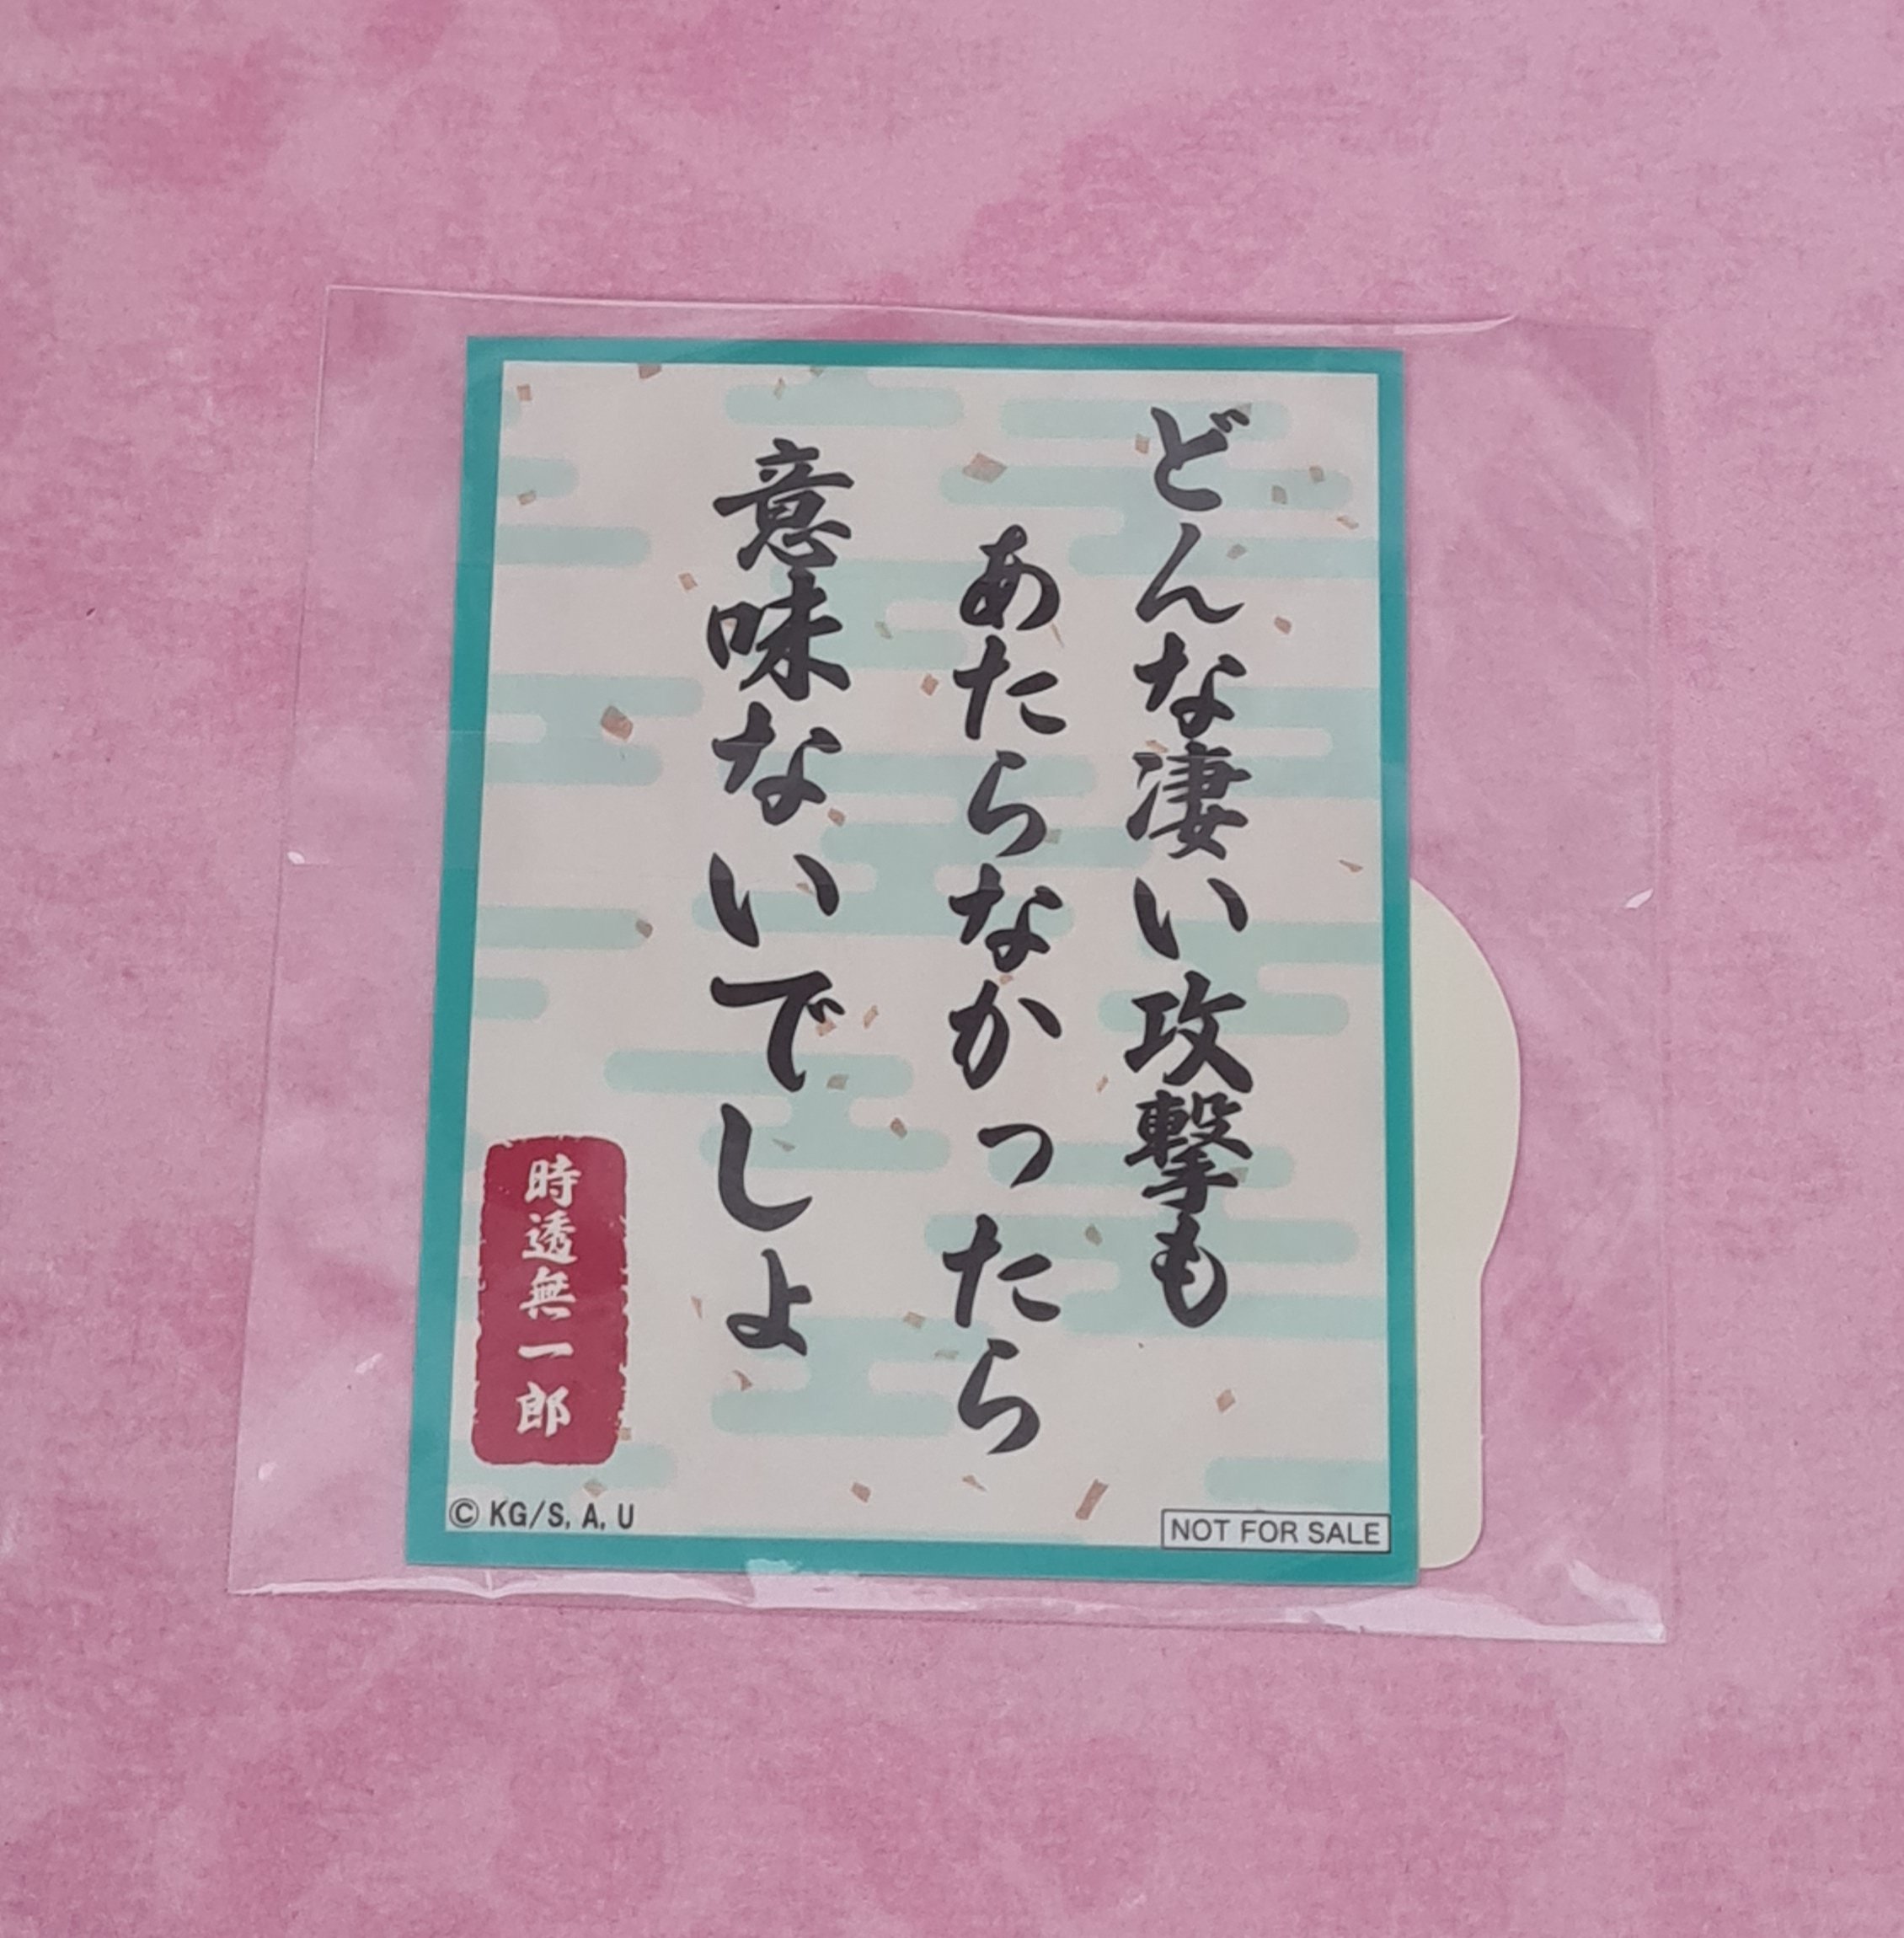 どんな凄い攻撃も
あたらなかったら
意味ないでしょ
時透無一郎
© KG/S, A, U
NOT FOR SALE